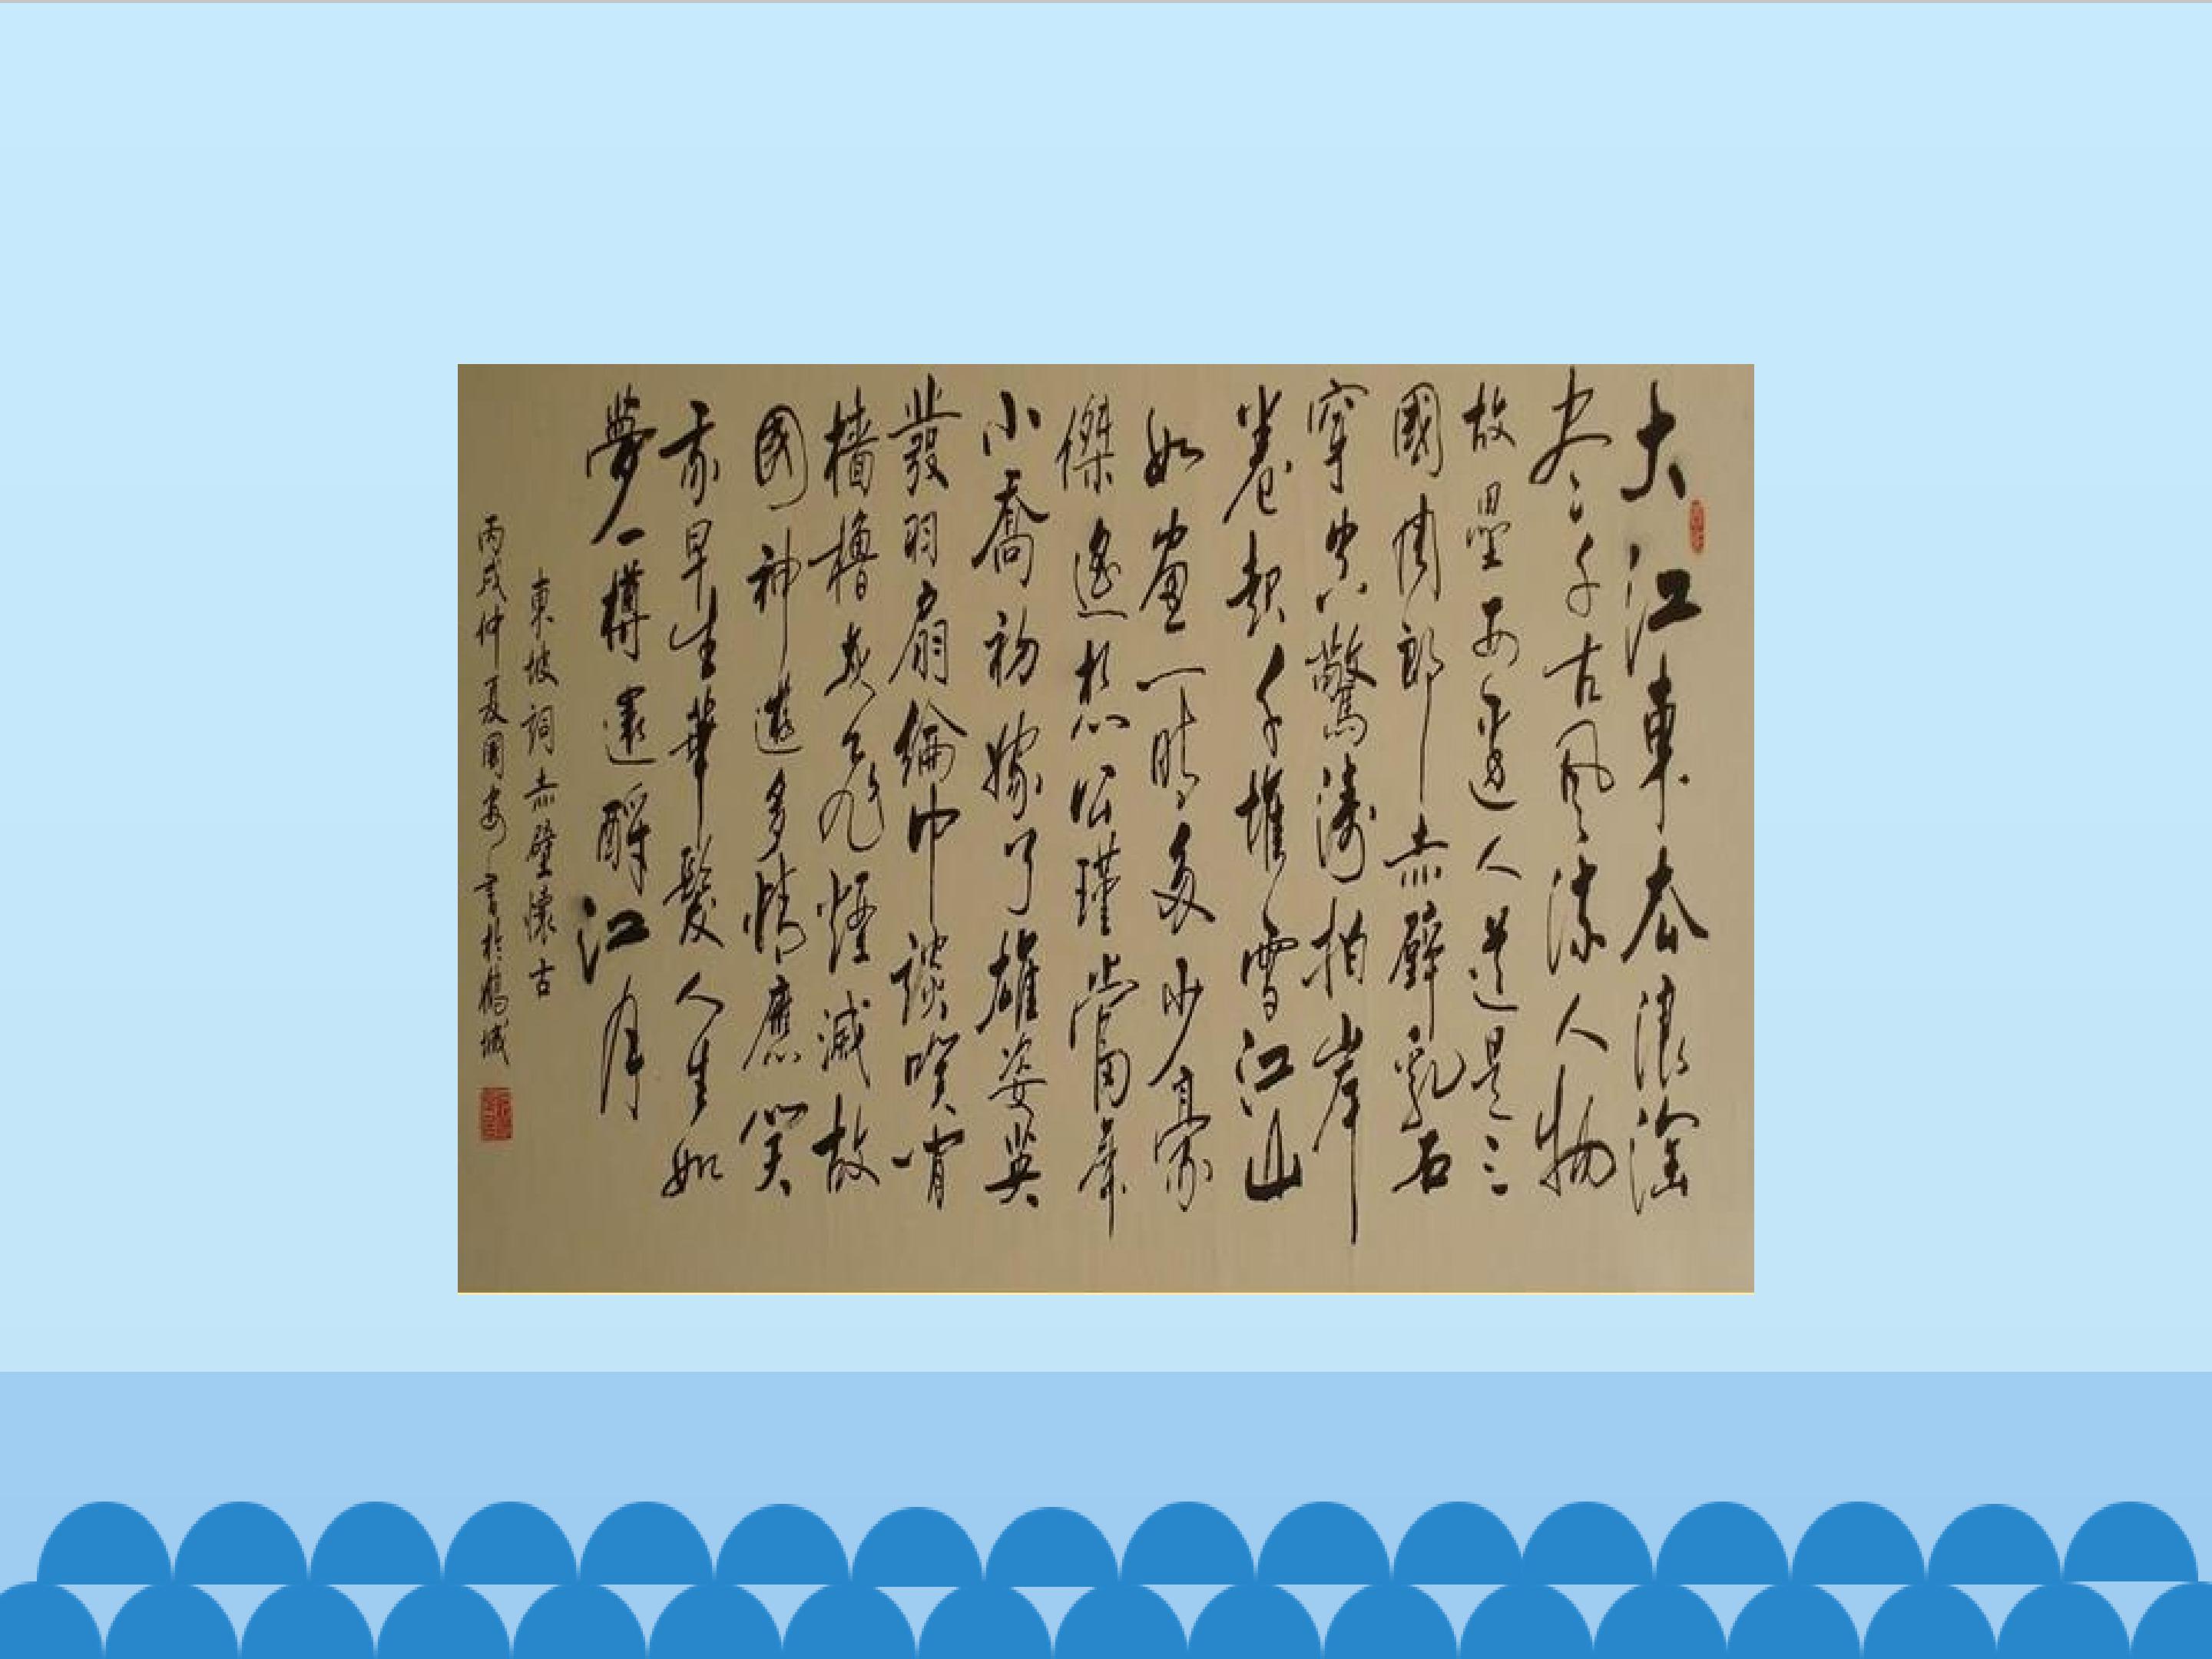 大江東去浪淘
尽千古風流人物
故壘西邊人道是三
國周郎赤壁乱石
穿空驚濤拍岸
卷起千堆雪江山
如畫一時多少豪
傑遙想公瑾當年
小喬初嫁了雄姿英
發羽扇綸巾談笑間
檣櫓灰飛煙滅故
國神遊多情應笑
我早生華髮人生如
夢一樽還酹江月
東坡詞赤壁懷古
丙戌仲夏國安書於鶴城